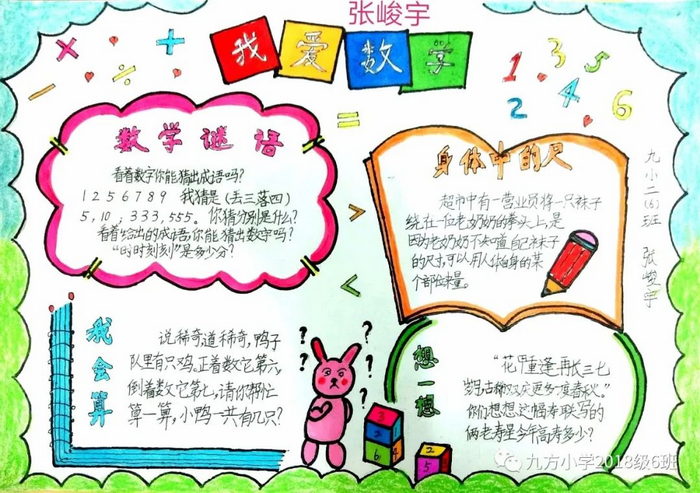 张峻宇
我爱数学
× ÷ + −
1 2 3 4 5 6
数学谜语
看着数字你能猜出成语吗?
1 2 5 6 7 8 9 我猜是(丢三落四)
5,10 ; 333,555。你猜分别是什么?
看着给出的成语,你能猜出数字吗?
“的时刻刻”是多少分?
=
>
<
身体中的尺
超市中有一营业员将一只袜子
绕在一位老奶奶的拳头上,是
因为老奶奶不知道自己袜子
的尺寸,可以用人体自身的某
个部位来量。
九小二(6)班 张峻宇
我会算
说稀奇道稀奇,鸭子
队里有只鸡。正着数它第六,
倒着数它第七,请你帮忙
算一算,小鸭一共有几只?
? ? ? ? ?
3
2
6
2
5
想一想
“花甲重逢再长三七
岁,古稀双庆更多一度春秋。”
你们想想这幅寿联写的
俩老寿星今年高寿多少?
九方小学2018级6班